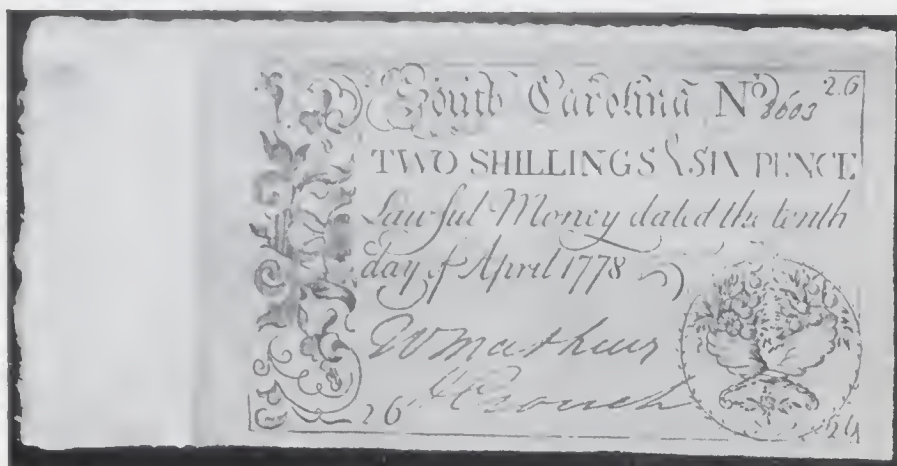 South Carolina No. 8603 2.6
TWO SHILLINGS & SIX PENCE
Lawful Money dated the tenth
day of April 1778
Wm mathews
26 H Crouch 26